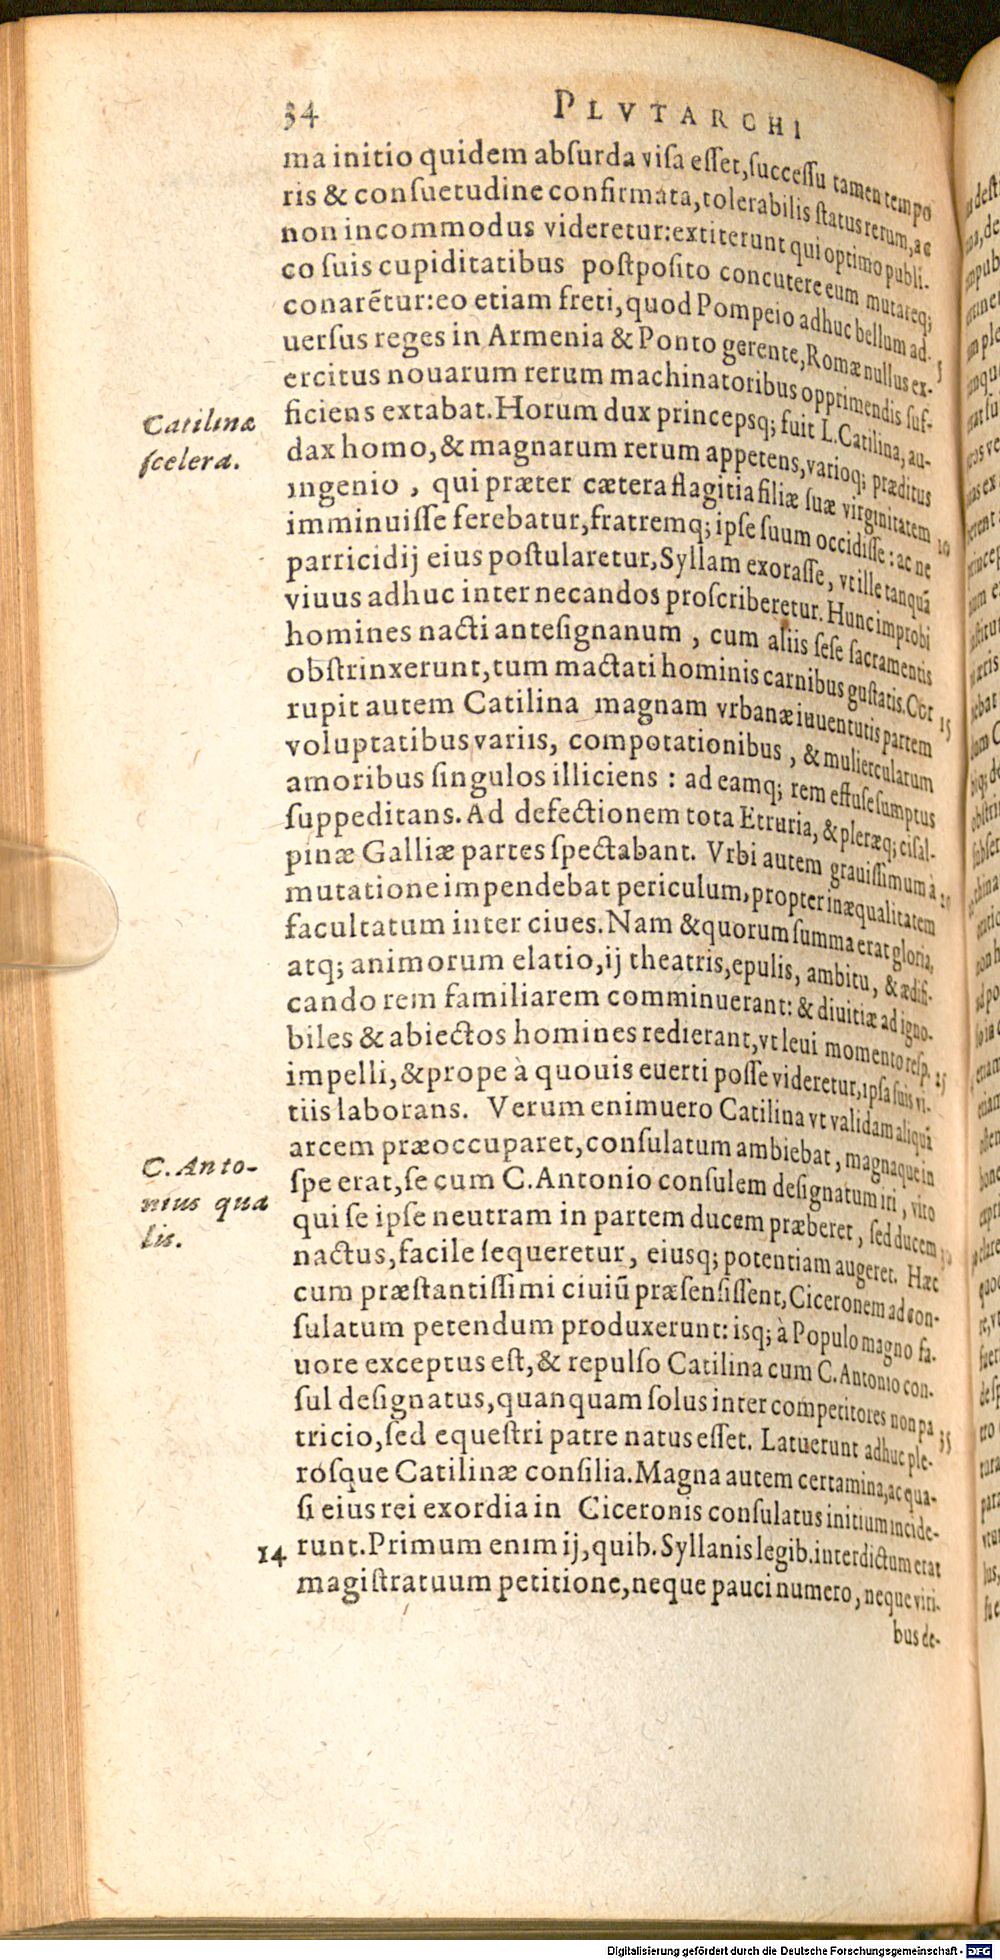 34 PLVTARCHI
ma initio quidem abſurda viſa eſſet, ſucceſſu tamen tempo
ris & conſuetudine confirmata, tolerabilis ſtatus rerum, ac
non incommodus videretur: extiterunt qui optimo publi-
co ſuis cupiditatibus poſtpoſito concutere eum mutareq;
conarẽtur: eo etiam freti, quod Pompeio adhuc bellum ad-
uerſus reges in Armenia & Ponto gerente, Romæ nullus ex- 5
ercitus nouarum rerum machinatoribus opprimendis ſuf-
ficiens extabat. Horum dux princepsq; fuit L. Catilina, au-
Catilinæ
ſcelera.
dax homo, & magnarum rerum appetens, varioq; præditus
ingenio, qui præter cætera flagitia filiæ ſuæ virginitatem
imminuiſſe ferebatur, fratremq; ipſe ſuum occidiſſe: ac ne 10
parricidij eius poſtularetur, Syllam exoraſſe, vt ille tanquā
viuus adhuc inter necandos proſcriberetur. Hunc improbi
homines nacti anteſignanum, cum aliis ſeſe ſacramentis
obſtrinxerunt, tum mactati hominis carnibus guſtatis. Cor
rupit autem Catilina magnam vrbanæ iuuentutis partem 15
voluptatibus variis, compotationibus, & muliercularum
amoribus ſingulos illiciens: ad eamq; rem effuſe ſumptus
ſuppeditans. Ad defectionem tota Etruria, & pleræq; ciſal-
pinæ Galliæ partes ſpectabant. Vrbi autem grauiſſimum à
mutatione impendebat periculum, propter inæqualitatem 20
facultatum inter ciues. Nam & quorum ſumma erat gloria,
atq; animorum elatio, ij theatris, epulis, ambitu, & ædifi-
cando rem familiarem comminuerant: & diuitiæ ad igno-
biles & abiectos homines redierant, vt leui momento reſp.
impelli, & prope à quouis euerti poſſe videretur, ipſa ſuis vi- 25
tiis laborans. Verum enimuero Catilina vt validam aliquā
arcem præoccuparet, conſulatum ambiebat, magnaque in
C. Anto-
nius qua
lis.
ſpe erat, ſe cum C. Antonio conſulem deſignatum iri, viro
qui ſe ipſe neutram in partem ducem præberet, ſed ducem
nactus, facile ſequeretur, eiusq; potentiam augeret. Hæc 30
cum præſtantiſſimi ciuiū præſenſiſſent, Ciceronem ad con-
ſulatum petendum produxerunt: isq; à Populo magno fa-
uore exceptus eſt, & repulſo Catilina cum C. Antonio con-
ſul deſignatus, quanquam ſolus inter competitores non pa
tricio, ſed equeſtri patre natus eſſet. Latuerunt adhuc ple- 35
róſque Catilinæ conſilia. Magna autem certamina, ac qua-
ſi eius rei exordia in Ciceronis conſulatus initium incide-
14 runt. Primum enim ij, quib. Syllanis legib. interdictum erat
magiſtratuum petitione, neque pauci numero, neque viri-
bus de-
Digitalisierung gefördert durch die Deutsche Forschungsgemeinschaft - DFG